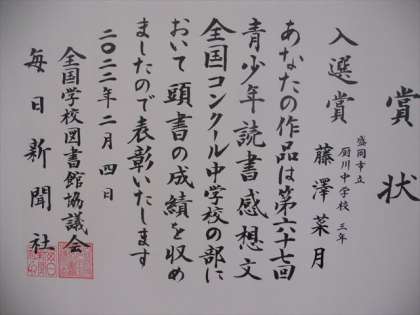 賞状
盛岡市立
厨川中学校 三年
入選賞 藤澤菜月
あなたの作品は第六十七回
青少年読書感想文
全国コンクール中学校の部に
おいて頭書の成績を収め
ましたので表彰いたします
二〇二二年二月四日
全国学校図書館協議会
毎日新聞社